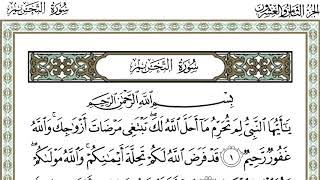 سُورَةُ التَّحْرِيمِ
الجُزْءُ الثَّامِنُ وَالعِشْرُونَ
سُورَةُ التَّحْرِيمِ
بِسْمِ اللَّهِ الرَّحْمَٰنِ الرَّحِيمِ
يَٰٓأَيُّهَا النَّبِيُّ لِمَ تُحَرِّمُ مَآ أَحَلَّ اللَّهُ لَكَ ۖ تَبْتَغِي مَرْضَاتَ أَزْوَٰجِكَ ۚ وَاللَّهُ
غَفُورٌ رَّحِيمٌ ١ قَدْ فَرَضَ اللَّهُ لَكُمْ تَحِلَّةَ أَيْمَٰنِكُمْ ۚ وَاللَّهُ مَوْلَىٰكُمْ ۖ